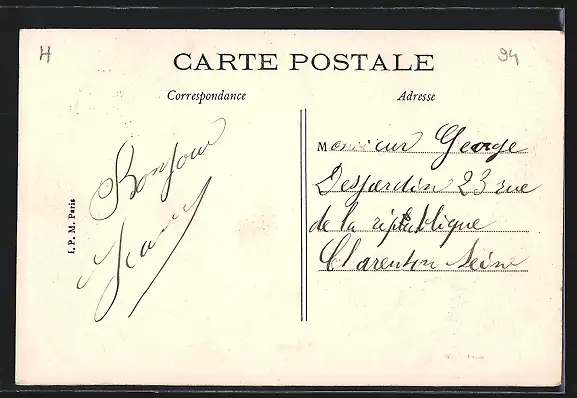 H
94
CARTE POSTALE
Correspondance
Adresse
Bonjour
Jeanne
I. P. M. Paris
Monsieur George
Desjardin 23 rue
de la république
Charenton Seine